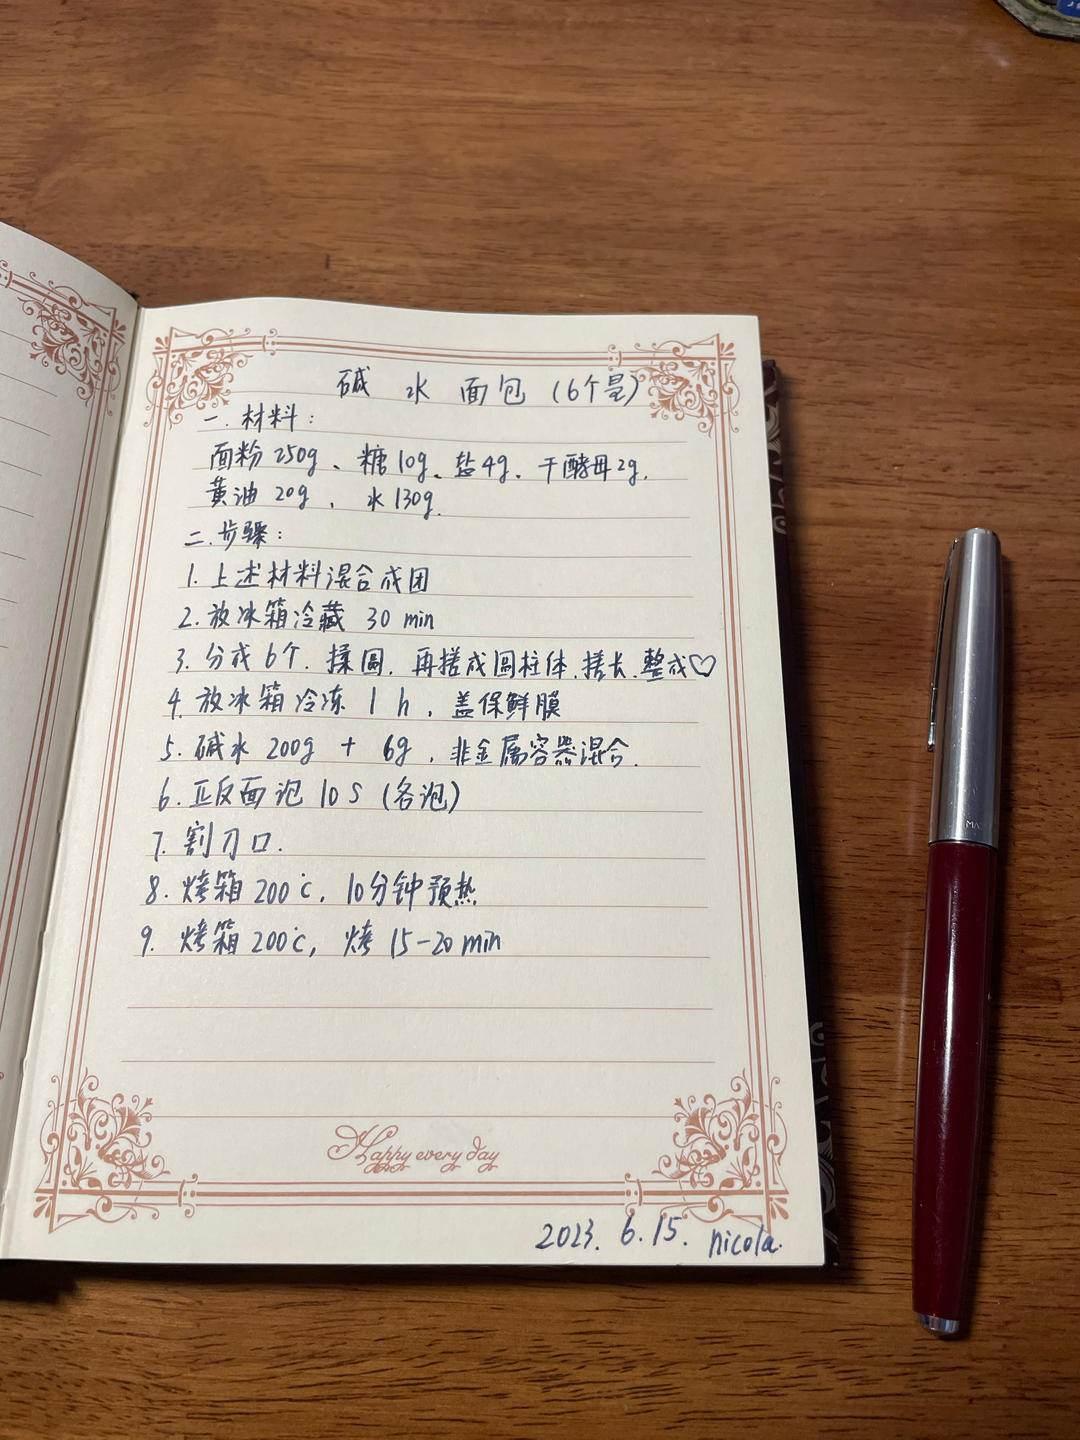 碱水面包(6个量)
一.材料:
面粉250g、糖10g、盐4g、干酵母2g,
黄油20g,水130g.
二.步骤:
1.上述材料混合成团
2.放冰箱冷藏 30 min
3.分成6个.揉圆.再搓成圆柱体.搓长.整成♡
4.放冰箱冷冻 1 h,盖保鲜膜
5.碱水 200g + 6g,非金属容器混合.
6.正反面泡10S(各泡)
7.割刀口.
8.烤箱200℃,10分钟预热
9.烤箱200℃,烤15-20min
Happy every day
2023. 6.15. nicola.